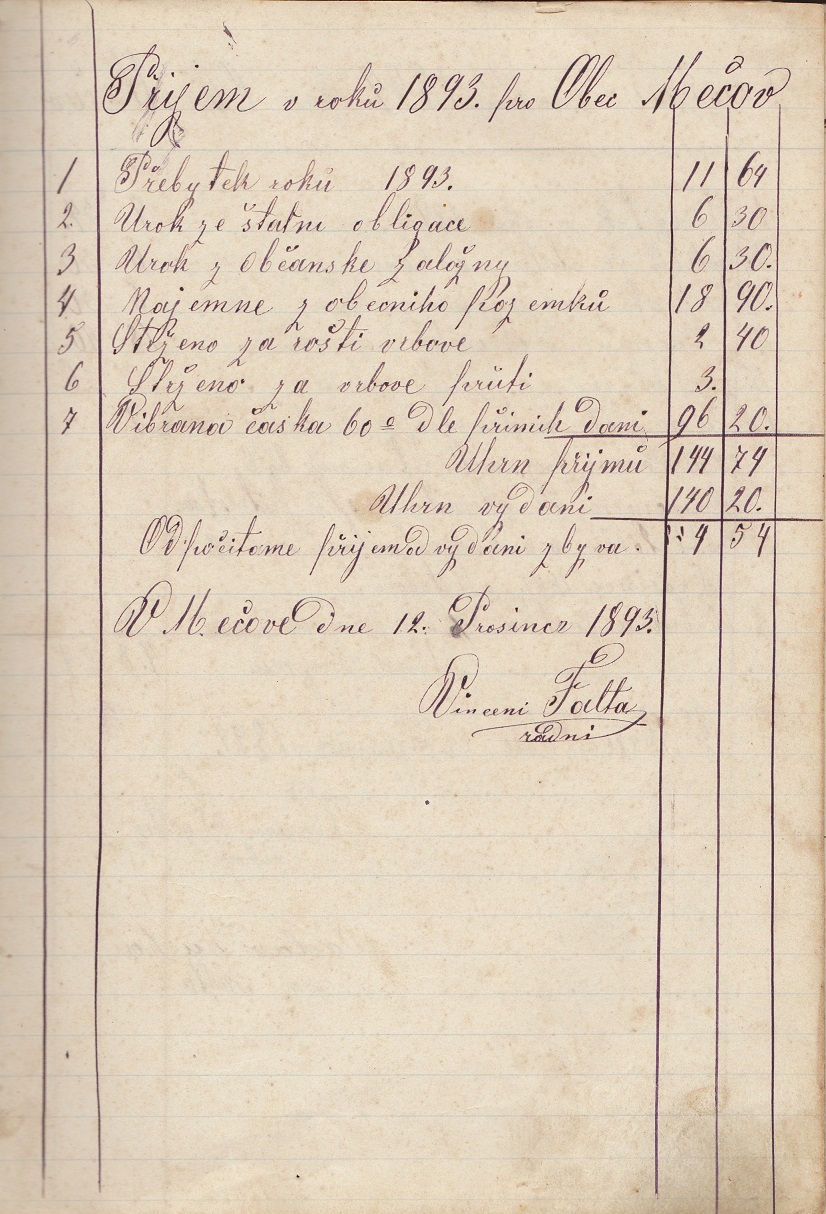 Přijem v roků 1893. pro Obec Mečov
1 Přebytek roků 1893. 11 64
2. Urok ze štatni obligace 6 30
3 Urok z Občanske Založny 6 30.
4 Najemne z obecniho pozemků 18 90.
5 Strženo za rošti vrbove 2 40
6 Strženo za vrbove pruti 3.
7 Vibraná častka 60 % dle přimich dani 96 20.
Uhrn přijmů 144 74
Uhrn vydani 140 20.
Odpočitame přijem a vydani zbyva. 4 54
V Mečově dne 12. Prosincz 1893.
Vinceni Falta
radni